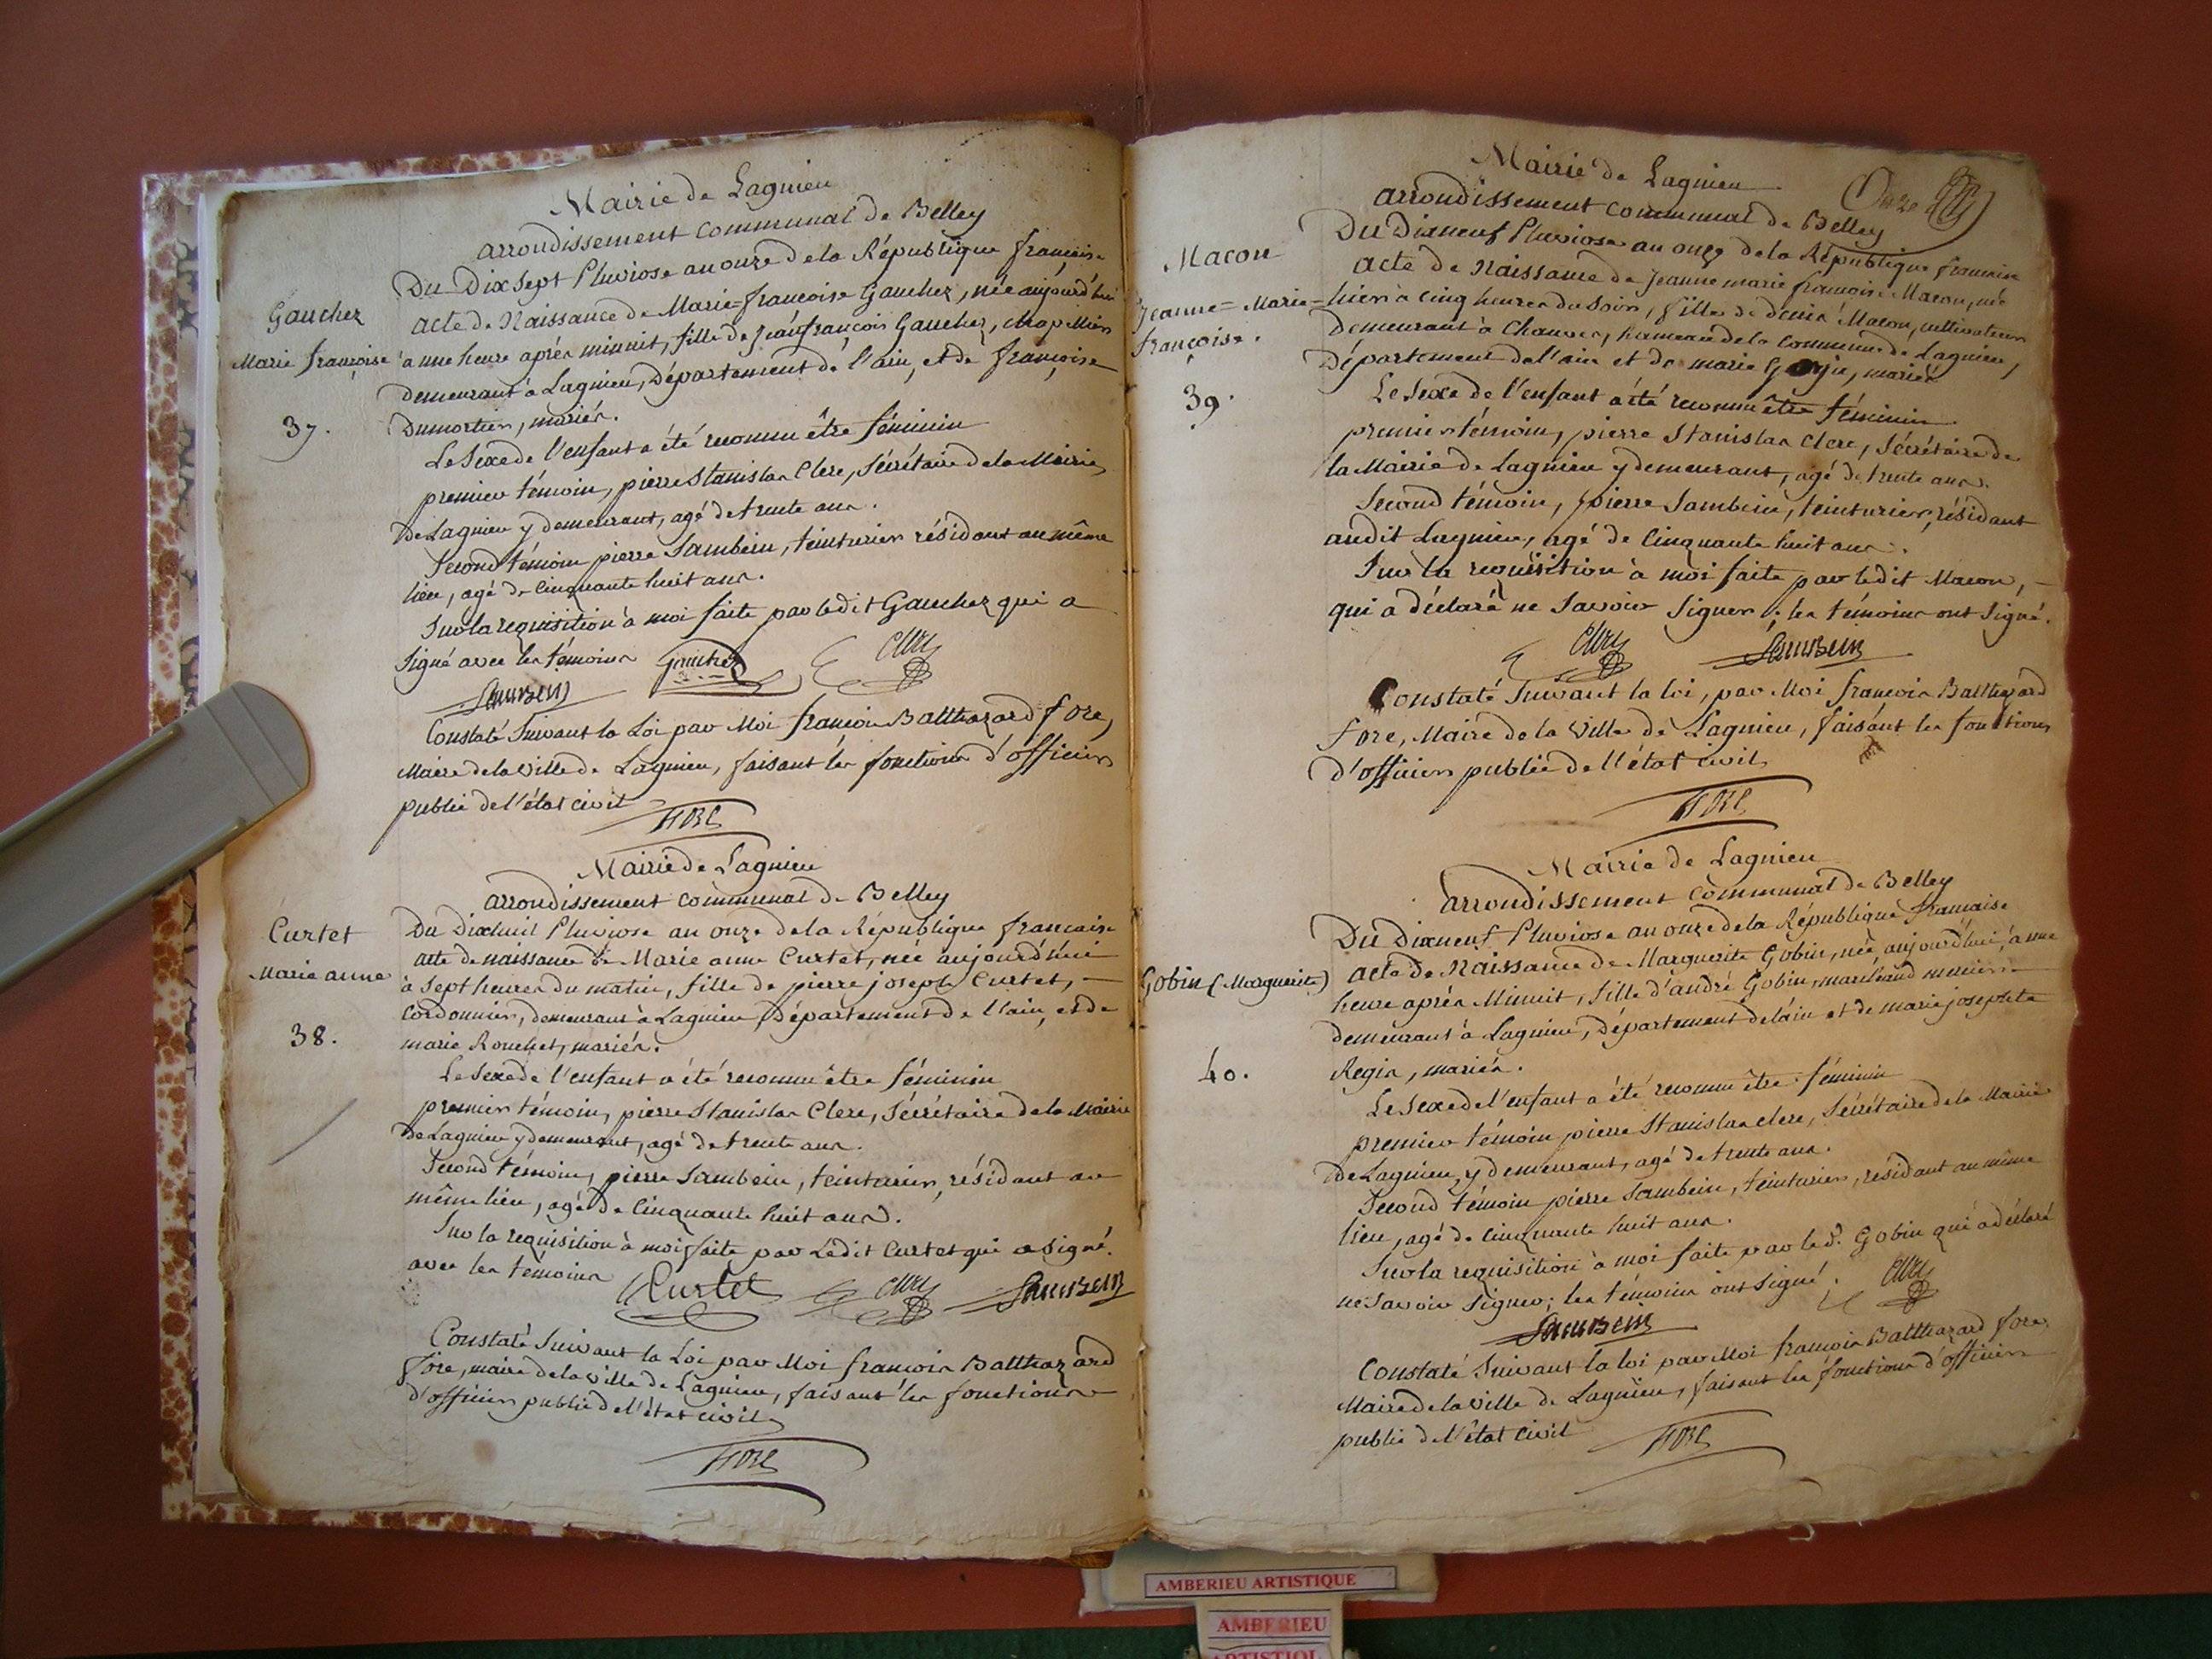 Mairie de Lagnieu
arrondissement communal de Belley
Gauchez
Marie françoise
37.
Du Dix Sept Pluviose an onze de la République française
acte de Naissance de Marie=françoise Gauchez, née aujourd'hui
à une heure après minuit, fille de Jean françois Gauchez, chapellier
demeurant à Lagnieu, Département de l'ain, et de françoise
Dumortier, mariés.
Le Sexe de l'enfant a été reconnu être féminin
premier témoin, pierre Stanislas Clerc, Sécrétaire de la Mairie
de Lagnieu y demeurant, agé de trente ans.
Second témoin pierre Sambein, teinturier résidant au même
lieu, agé de Cinquante huit ans.
Sur la requisition à moi faite par ledit Gauchez qui a
Signé avec les témoins Gauchez Clerc
Sambein
Constaté Suivant la Loi par Moi françois Balthazard fore,
Maire de la ville de Lagnieu, faisant les fonctions d'officier
public de l'état civil
FORE
Mairie de Lagnieu
arrondissement communal de Belley
Curtet
Marie anne
38.
Du Dixhuit Pluviose an onze de la République française
acte de naissance de Marie anne Curtet, née aujourd'hui
à Sept heures du matin, fille de pierre joseph Curtet, -
Cordonnier, demeurant à Lagnieu, Département de l'ain, et de
marie Rouchet, mariés.
Le Sexe de l'enfant a été reconnu être féminin
premier témoin, pierre Stanislas Clerc, Sécrétaire de la Mairie
de Lagnieu y demeurant, agé de trente ans.
Second témoin, pierre Sambein, teinturier, résidant au
même lieu, agé de Cinquante huit ans.
Sur la requisition à moi faite par Ledit Curtet qui a Signé
avec les témoins Curtet Clerc Sambein
Constaté Suivant la Loi par Moi françois Balthazard
fore, maire de la ville de Lagnieu, faisant les fonctions
d'officier public de l'état civil
FORE
Onze
Mairie de Lagnieu
arrondissement communal de Belley
Macon
Jeanne=Marie=
françoise.
39.
Du Dixneuf Pluviose an onze de la République française
acte de Naissance de Jeanne marie françoise Macon, née
hier à cinq heures du Soir, fille de denis Macon, cultivateur
Demeurant à Chanves, hameau de la commune de Lagnieu,
Département de l'ain et de marie, mariés
Le Sexe de l'enfant a été reconnu être féminin
premier témoin, pierre Stanislas Clerc, Sécrétaire de
la Mairie de Lagnieu y demeurant, agé de trente ans.
Second témoin, pierre Sambein, teinturier, résidant
audit Lagnieu, agé de Cinquante huit ans.
Sur la requisition à moi faite par ledit Macon, -
qui a déclaré ne Savoir Signer; les témoins ont Signé.
Clerc Sambein
Constaté Suivant la loi, par Moi françois Balthazard
fore, Maire de la Ville de Lagnieu, faisant les fonctions
d'officier public de l'état civil
FORE
Mairie de Lagnieu
arrondissement communal de Belley
Gobin (Marguerite)
40.
Du Dixneuf Pluviose an onze de la République française
acte de Naissance de Marguerite Gobin, née aujourd'hui, à une
heure après Minuit, fille d'andré Gobin, marchand mercier
demeurant à Lagnieu, Département de l'ain et de marie josephte
Regis, mariés.
Le Sexe de l'enfant a été reconnu être féminin
premier témoin pierre Stanislas clerc, Sécrétaire de la Mairie
de Lagnieu, y demeurant, agé de trente ans.
Second témoin pierre Sambein, teinturier, résidant au même
lieu, agé de Cinquante huit ans.
Sur la requisition à moi faite par le d. Gobin qui a déclaré
ne Savoir Signer; les témoins ont Signé. Clerc
Sambein
Constaté Suivant la loi par Moi françois Balthazard fore,
Maire de la ville de Lagnieu, faisant les fonctions d'officier
public de l'état civil
FORE
AMBERIEU ARTISTIQUE
AMBERIEU